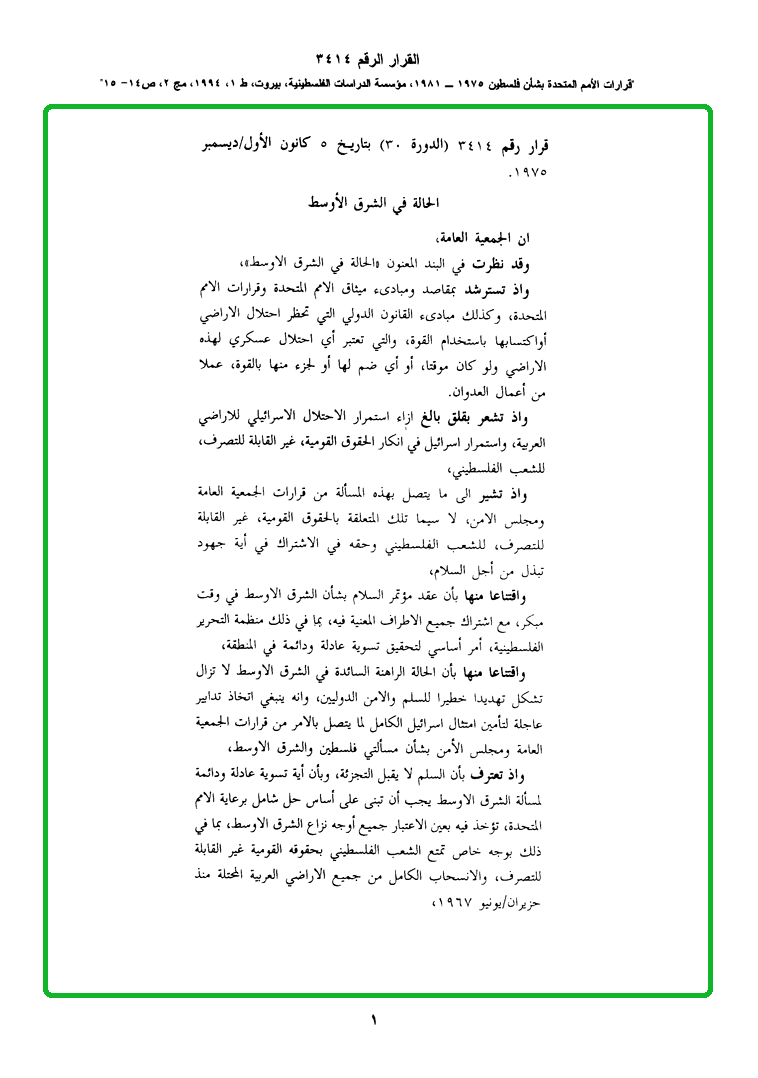 القرار الرقم ٣٤١٤
"قرارات الأمم المتحدة بشأن فلسطين ١٩٧٥ ــ ١٩٨١، مؤسسة الدراسات الفلسطينية، بيروت، ط ١، ١٩٩٤، مج ٢، ص١٤- ١٥"
قرار رقم ٣٤١٤ (الدورة ٣٠) بتاريخ ٥ كانون الأول/ديسمبر
١٩٧٥.
الحالة في الشرق الأوسط
ان الجمعية العامة،
وقد نظرت في البند المعنون «الحالة في الشرق الاوسط»،
واذ تسترشد بمقاصد ومبادىء ميثاق الامم المتحدة وقرارات الامم
المتحدة، وكذلك مبادىء القانون الدولي التي تحظر احتلال الاراضي
أواكتسابها باستخدام القوة، والتي تعتبر أي احتلال عسكري لهذه
الاراضي ولو كان موقتا، أو أي ضم لها أو لجزء منها بالقوة، عملا
من أعمال العدوان.
واذ تشعر بقلق بالغ ازاء استمرار الاحتلال الاسرائيلي للاراضي
العربية، واستمرار اسرائيل في انكار الحقوق القومية، غير القابلة للتصرف،
للشعب الفلسطيني،
واذ تشير الى ما يتصل بهذه المسألة من قرارات الجمعية العامة
ومجلس الامن، لا سيما تلك المتعلقة بالحقوق القومية، غير القابلة
للتصرف، للشعب الفلسطيني وحقه في الاشتراك في أية جهود
تبذل من أجل السلام،
واقتناعا منها بأن عقد مؤتمر السلام بشأن الشرق الاوسط في وقت
مبكر، مع اشتراك جميع الاطراف المعنية فيه، بما في ذلك منظمة التحرير
الفلسطينية، أمر أساسي لتحقيق تسوية عادلة ودائمة في المنطقة،
واقتناعا منها بأن الحالة الراهنة السائدة في الشرق الاوسط لا تزال
تشكل تهديدا خطيرا للسلم والامن الدوليين، وانه ينبغي اتخاذ تدابير
عاجلة لتأمين امتثال اسرائيل الكامل لما يتصل بالامر من قرارات الجمعية
العامة ومجلس الأمن بشأن مسألتي فلسطين والشرق الاوسط،
واذ تعترف بأن السلم لا يقبل التجزئة، وبأن أية تسوية عادلة ودائمة
لمسألة الشرق الاوسط يجب أن تبنى على أساس حل شامل برعاية الامم
المتحدة، تؤخذ فيه بعين الاعتبار جميع أوجه نزاع الشرق الاوسط، بما في
ذلك بوجه خاص تمتع الشعب الفلسطيني بحقوقه القومية غير القابلة
للتصرف، والانسحاب الكامل من جميع الاراضي العربية المحتلة منذ
حزيران/يونيو ١٩٦٧،
١